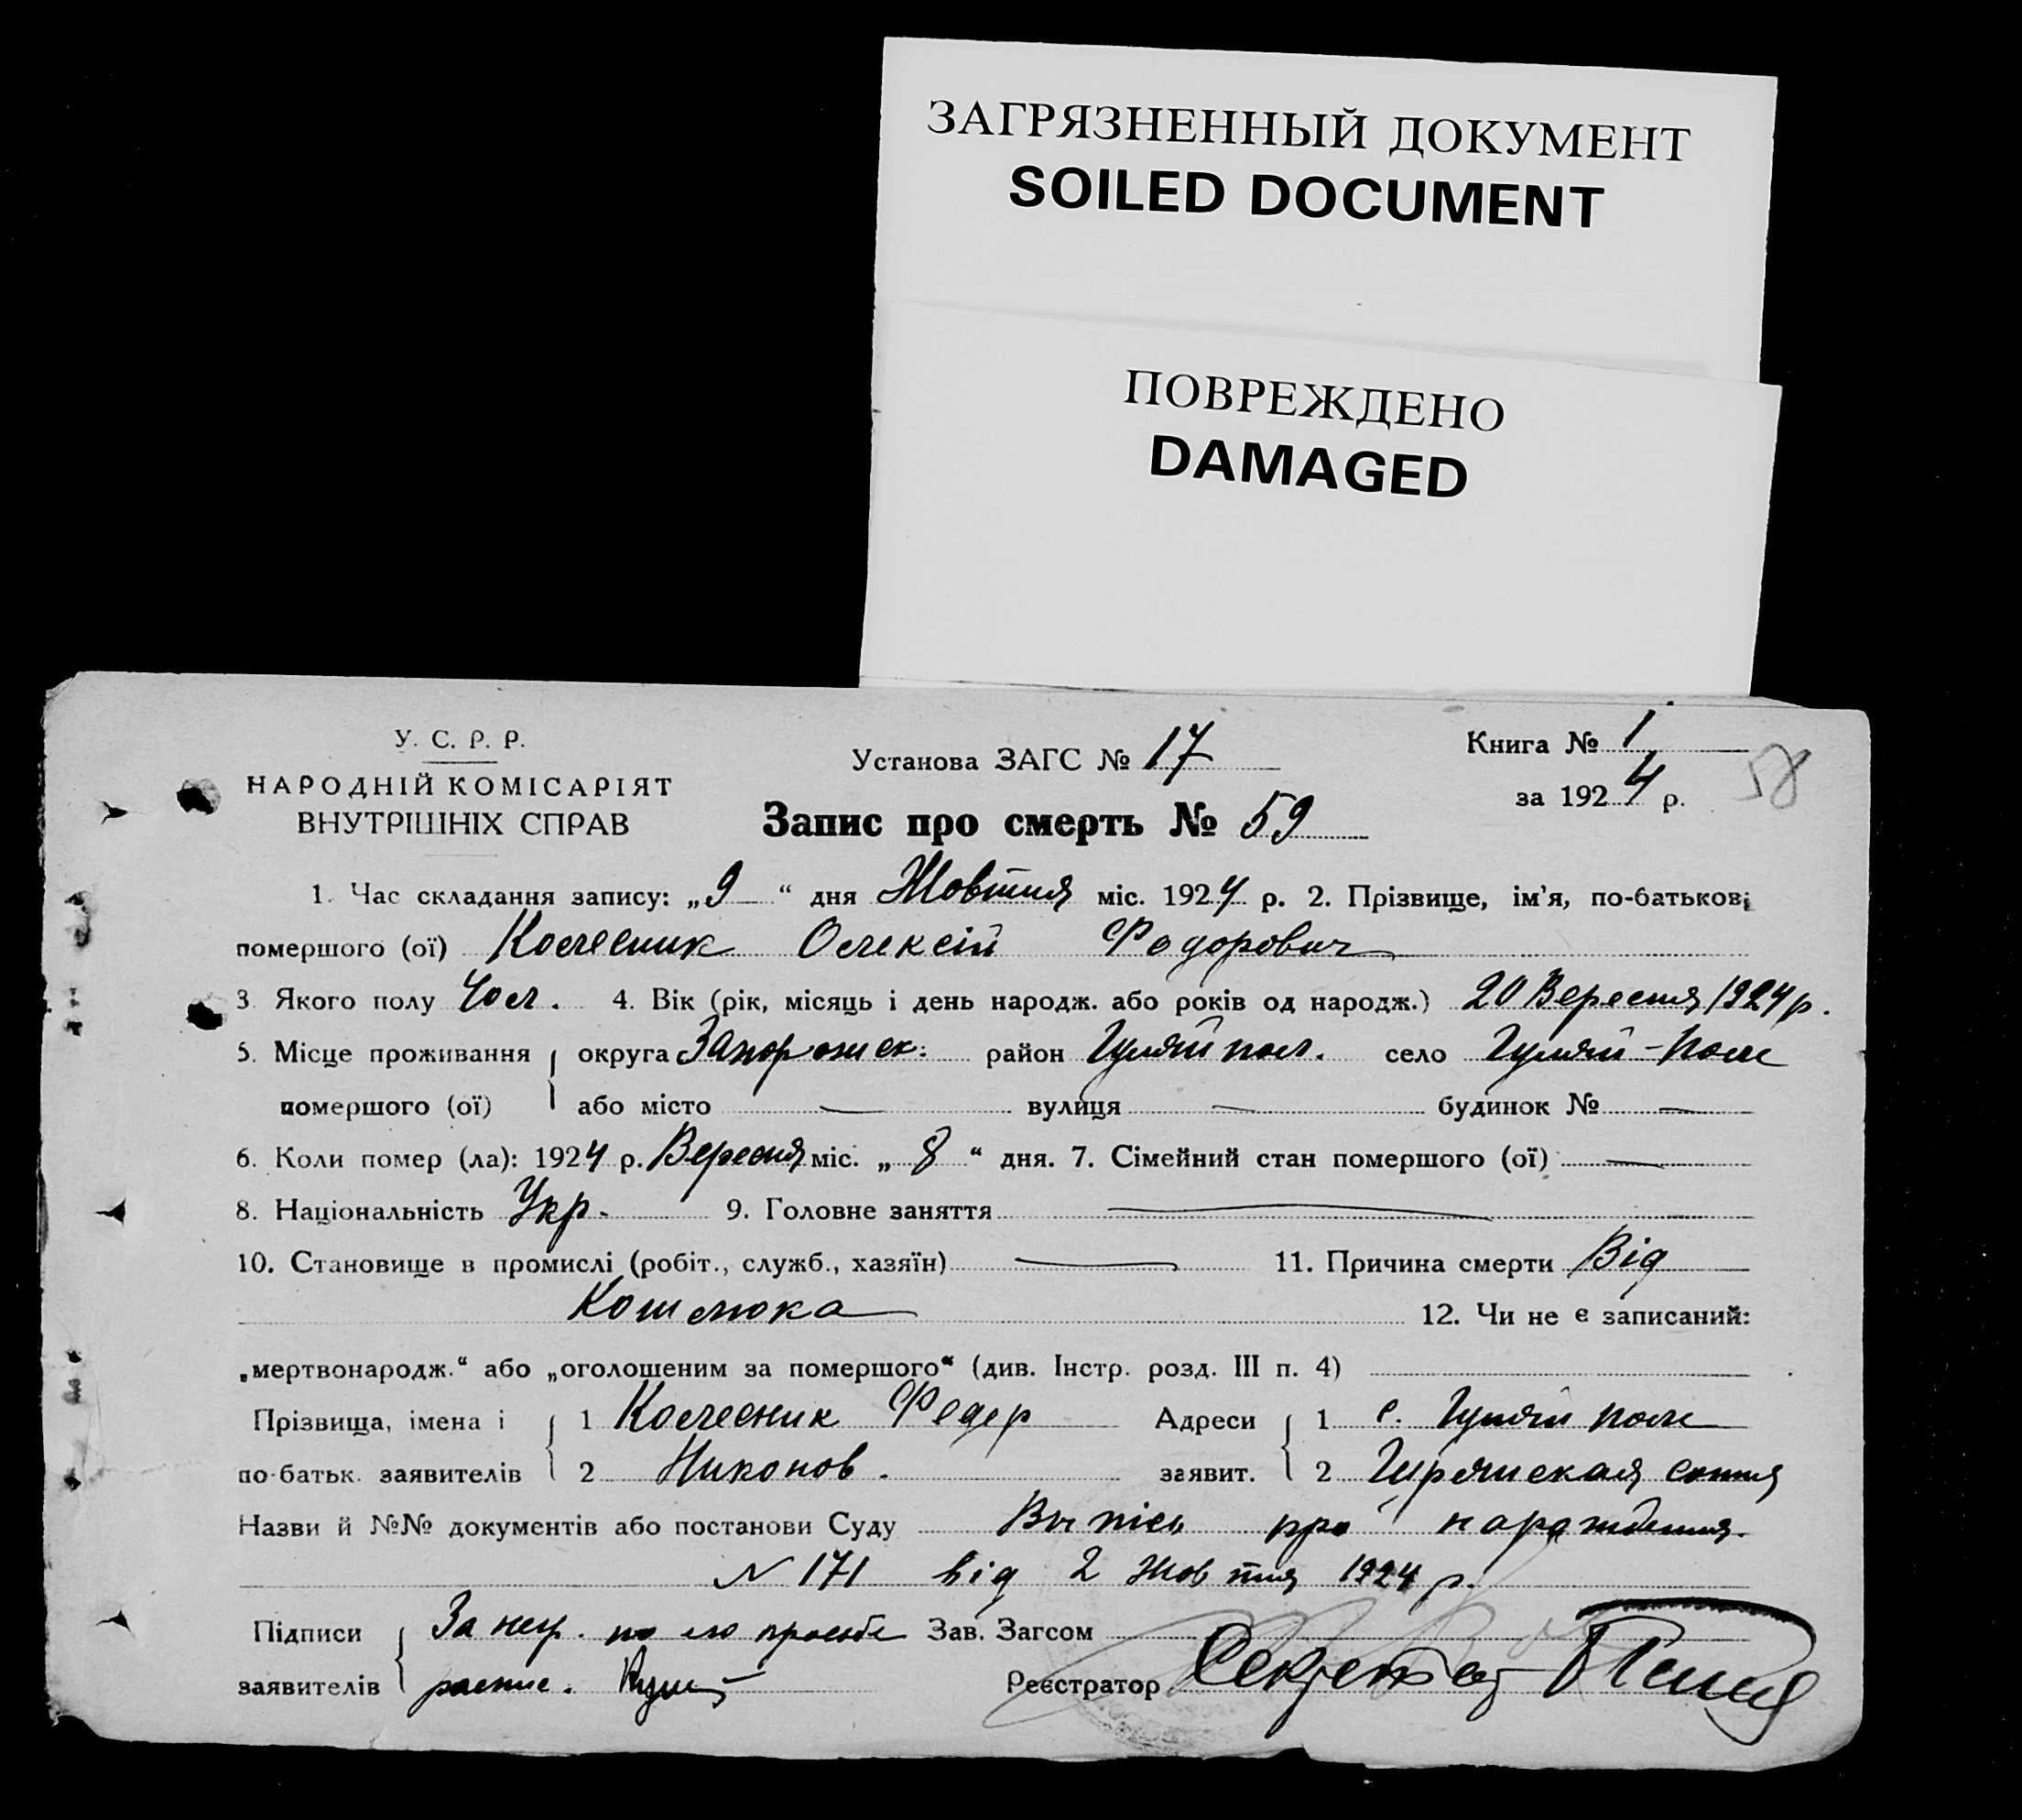 ЗАГРЯЗНЕННЫЙ ДОКУМЕНТ
SOILED DOCUMENT
ПОВРЕЖДЕНО
DAMAGED
У. С. Р. Р.
НАРОДНІЙ КОМІСАРІЯТ
ВНУТРІШНІХ СПРАВ
Установа ЗАГС № 17
Книга № 1
за 1924 р.
58
Запис про смерть № 59
1. Час складання запису: „9“ дня Жовтня міс. 1924 р. 2. Прізвище, ім'я, по-батькові
помершого (ої) Колесник Олексій Федорович
3 Якого полу Чол. 4. Вік (рік, місяць і день народж. або років од народж.) 20 Вересня 1924 р.
5. Місце проживання округа Запорожск: район Гуляйпол. село Гуляй-Поле
помершого (ої) або місто — вулиця — будинок № —
6. Коли помер (ла): 1924 р. Вересня міс. „8“ дня. 7. Сімейний стан помершого (ої) —
8. Національність Укр. 9. Головне заняття —
10. Становище в промислі (робіт., служб., хазяїн) — 11. Причина смерти Від
Кошлюка 12. Чи не є записаний:
„мертвонародж.“ або „оголошеним за помершого“ (див. Інстр. розд. III п. 4)
Прізвища, імена і 1 Колесник Федер Адреси 1 с. Гуляй поле
по-батьк. заявителів 2 Никонов. заявит. 2 сотня
Назви й №№ документів або постанови Суду Выпісь про нараждения.
N 171 від 2 Жовтня 1924 р.
Підписи За негр. по его просьбе Зав. Загсом
заявителів распис. Реєстратор Секретар